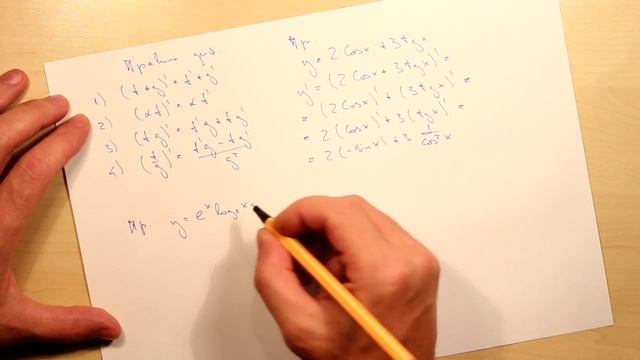 Правила диф.
1) (f+g)' = f' + g'
2) (αf)' = αf'
3) (fg)' = f'g + fg'
4) (f/g)' = (f'g - fg')/g²
Пр.
y = 2 cos x + 3 tg x
y' = (2 cos x + 3 tg x)' =
= (2 cos x)' + (3 tg x)' =
= 2 (cos x)' + 3 (tg x)' =
= 2 (-sin x) + 3 1/cos² x
Пр. y = eˣ log